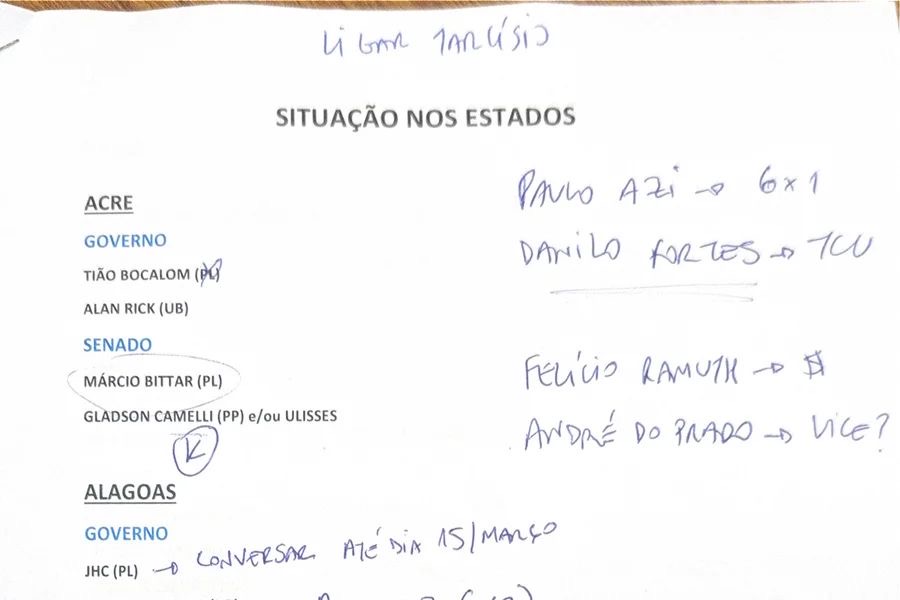 LIGAR TARCÍSIO
SITUAÇÃO NOS ESTADOS
ACRE
GOVERNO
TIÃO BOCALOM (PL)
ALAN RICK (UB)
SENADO
MÁRCIO BITTAR (PL)
GLADSON CAMELLI (PP) e/ou ULISSES
K
PAULO AZI → 6x1
DANILO FORTES → TCU
FELÍCIO RAMUTH → $
ANDRÉ DO PRADO → VICE?
ALAGOAS
GOVERNO
JHC (PL) → CONVERSAR ATÉ DIA 15/MARÇO